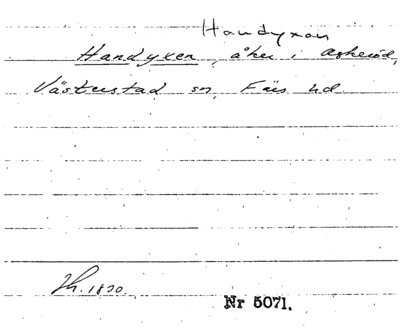 Handyxan
Handyxen, åker i Askeröd,
Västerstad sn, Färs hd
Th. 1830.
Nr 5071.